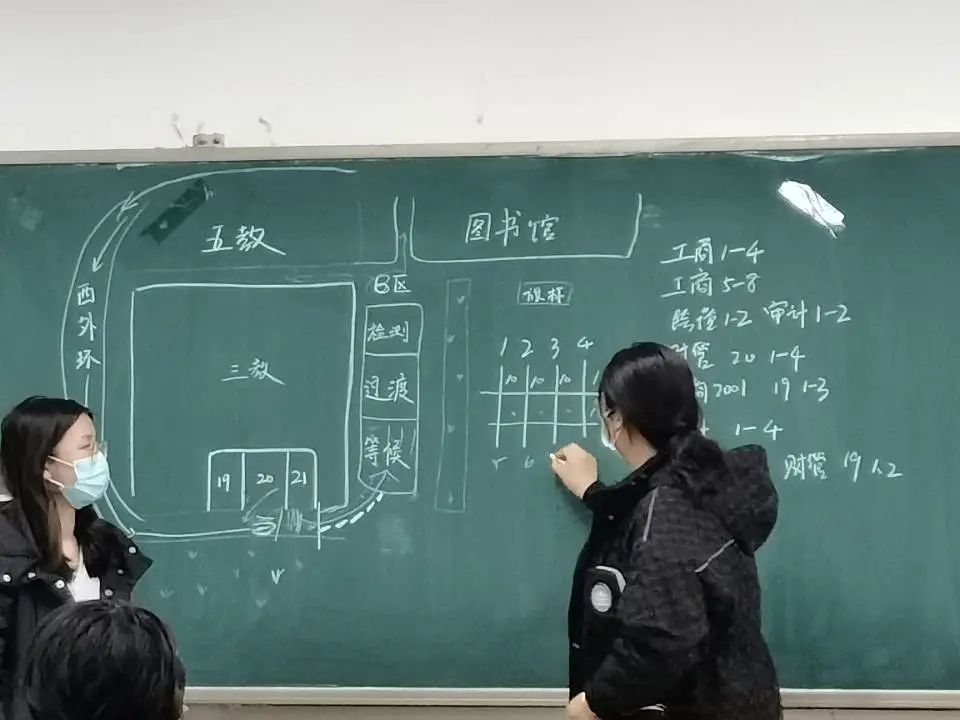 五教
图书馆
西外环
B区
检测
过渡
等候
三教
19 20 21
1 2 3 4
10 10 10
工商 1-4
工商 5-8
1-2 审计 1-2
财管 20 1-4
2001 19 1-3
1-4
财管 19 1.2